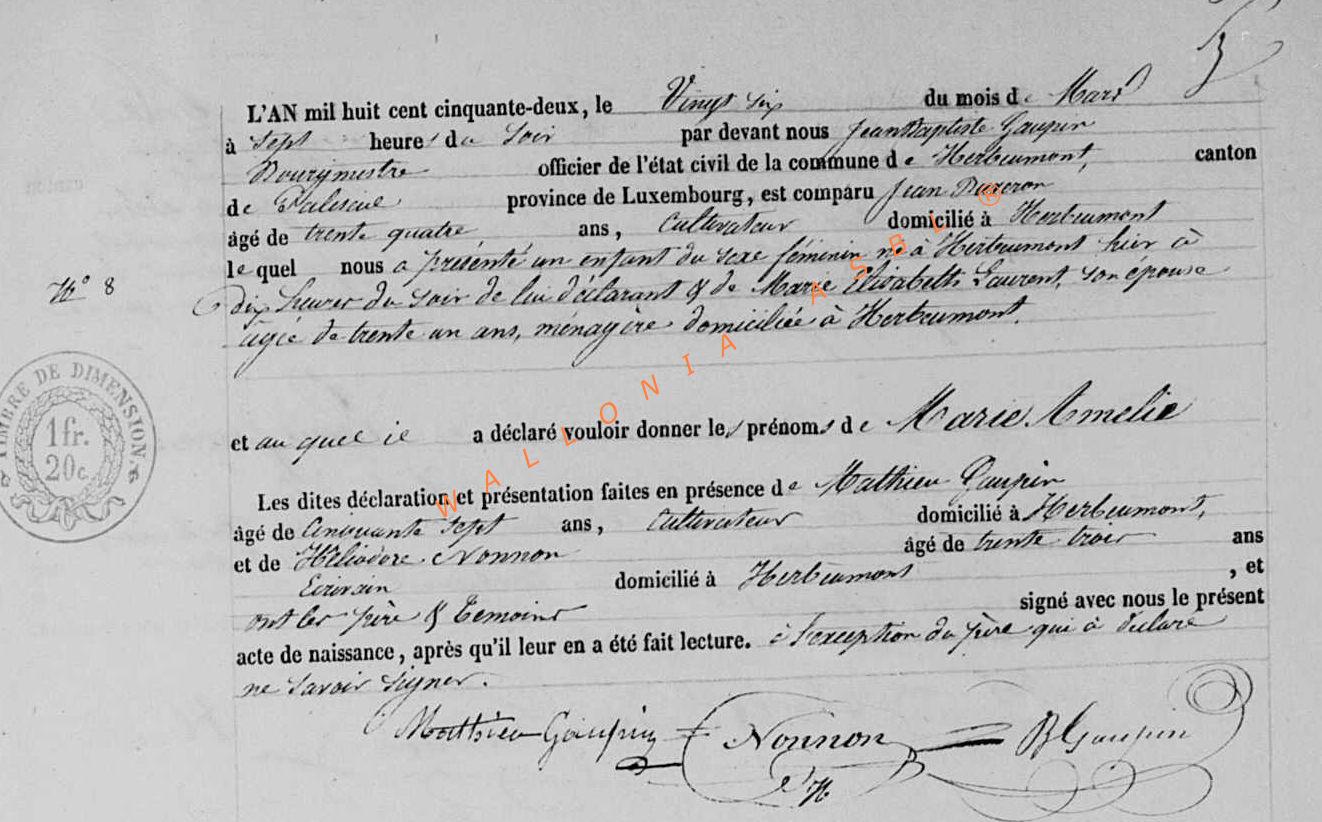 L'AN mil huit cent cinquante-deux, le Vingt six du mois de Mars
à sept heures du soir par devant nous Jean Baptiste Gaupin
Bourgmestre officier de l'état civil de la commune de Herbeumont, canton
de Paliseul province de Luxembourg, est comparu Jean
âgé de trente quatre ans, cultivateur domicilié à Herbeumont
lequel nous a présenté un enfant du sexe féminin né à Herbeumont hier à
N° 8
dix heures du soir de lui déclarant & de Marie Elisabeth Laurent, son épouse
âgée de trente un ans, ménagère domiciliée à Herbeumont.
TIMBRE DE DIMENSION
1 fr.
20 c
et auquel il a déclaré vouloir donner les prénoms de Marie Amelie
Les dites déclaration et présentation faites en présence de Mathieu Gaupin
âgé de cinquante sept ans, cultivateur domicilié à Herbeumont,
et de Héliodore Nonnon âgé de trente trois ans
Ecrivain domicilié à Herbeumont, et
ont les père & temoins signé avec nous le présent
acte de naissance, après qu'il leur en a été fait lecture. à l'exception du père qui à déclaré
ne savoir signer.
Mathieu Gaupin Nonnon JB Gaupin
WALLONIA ASBL ®